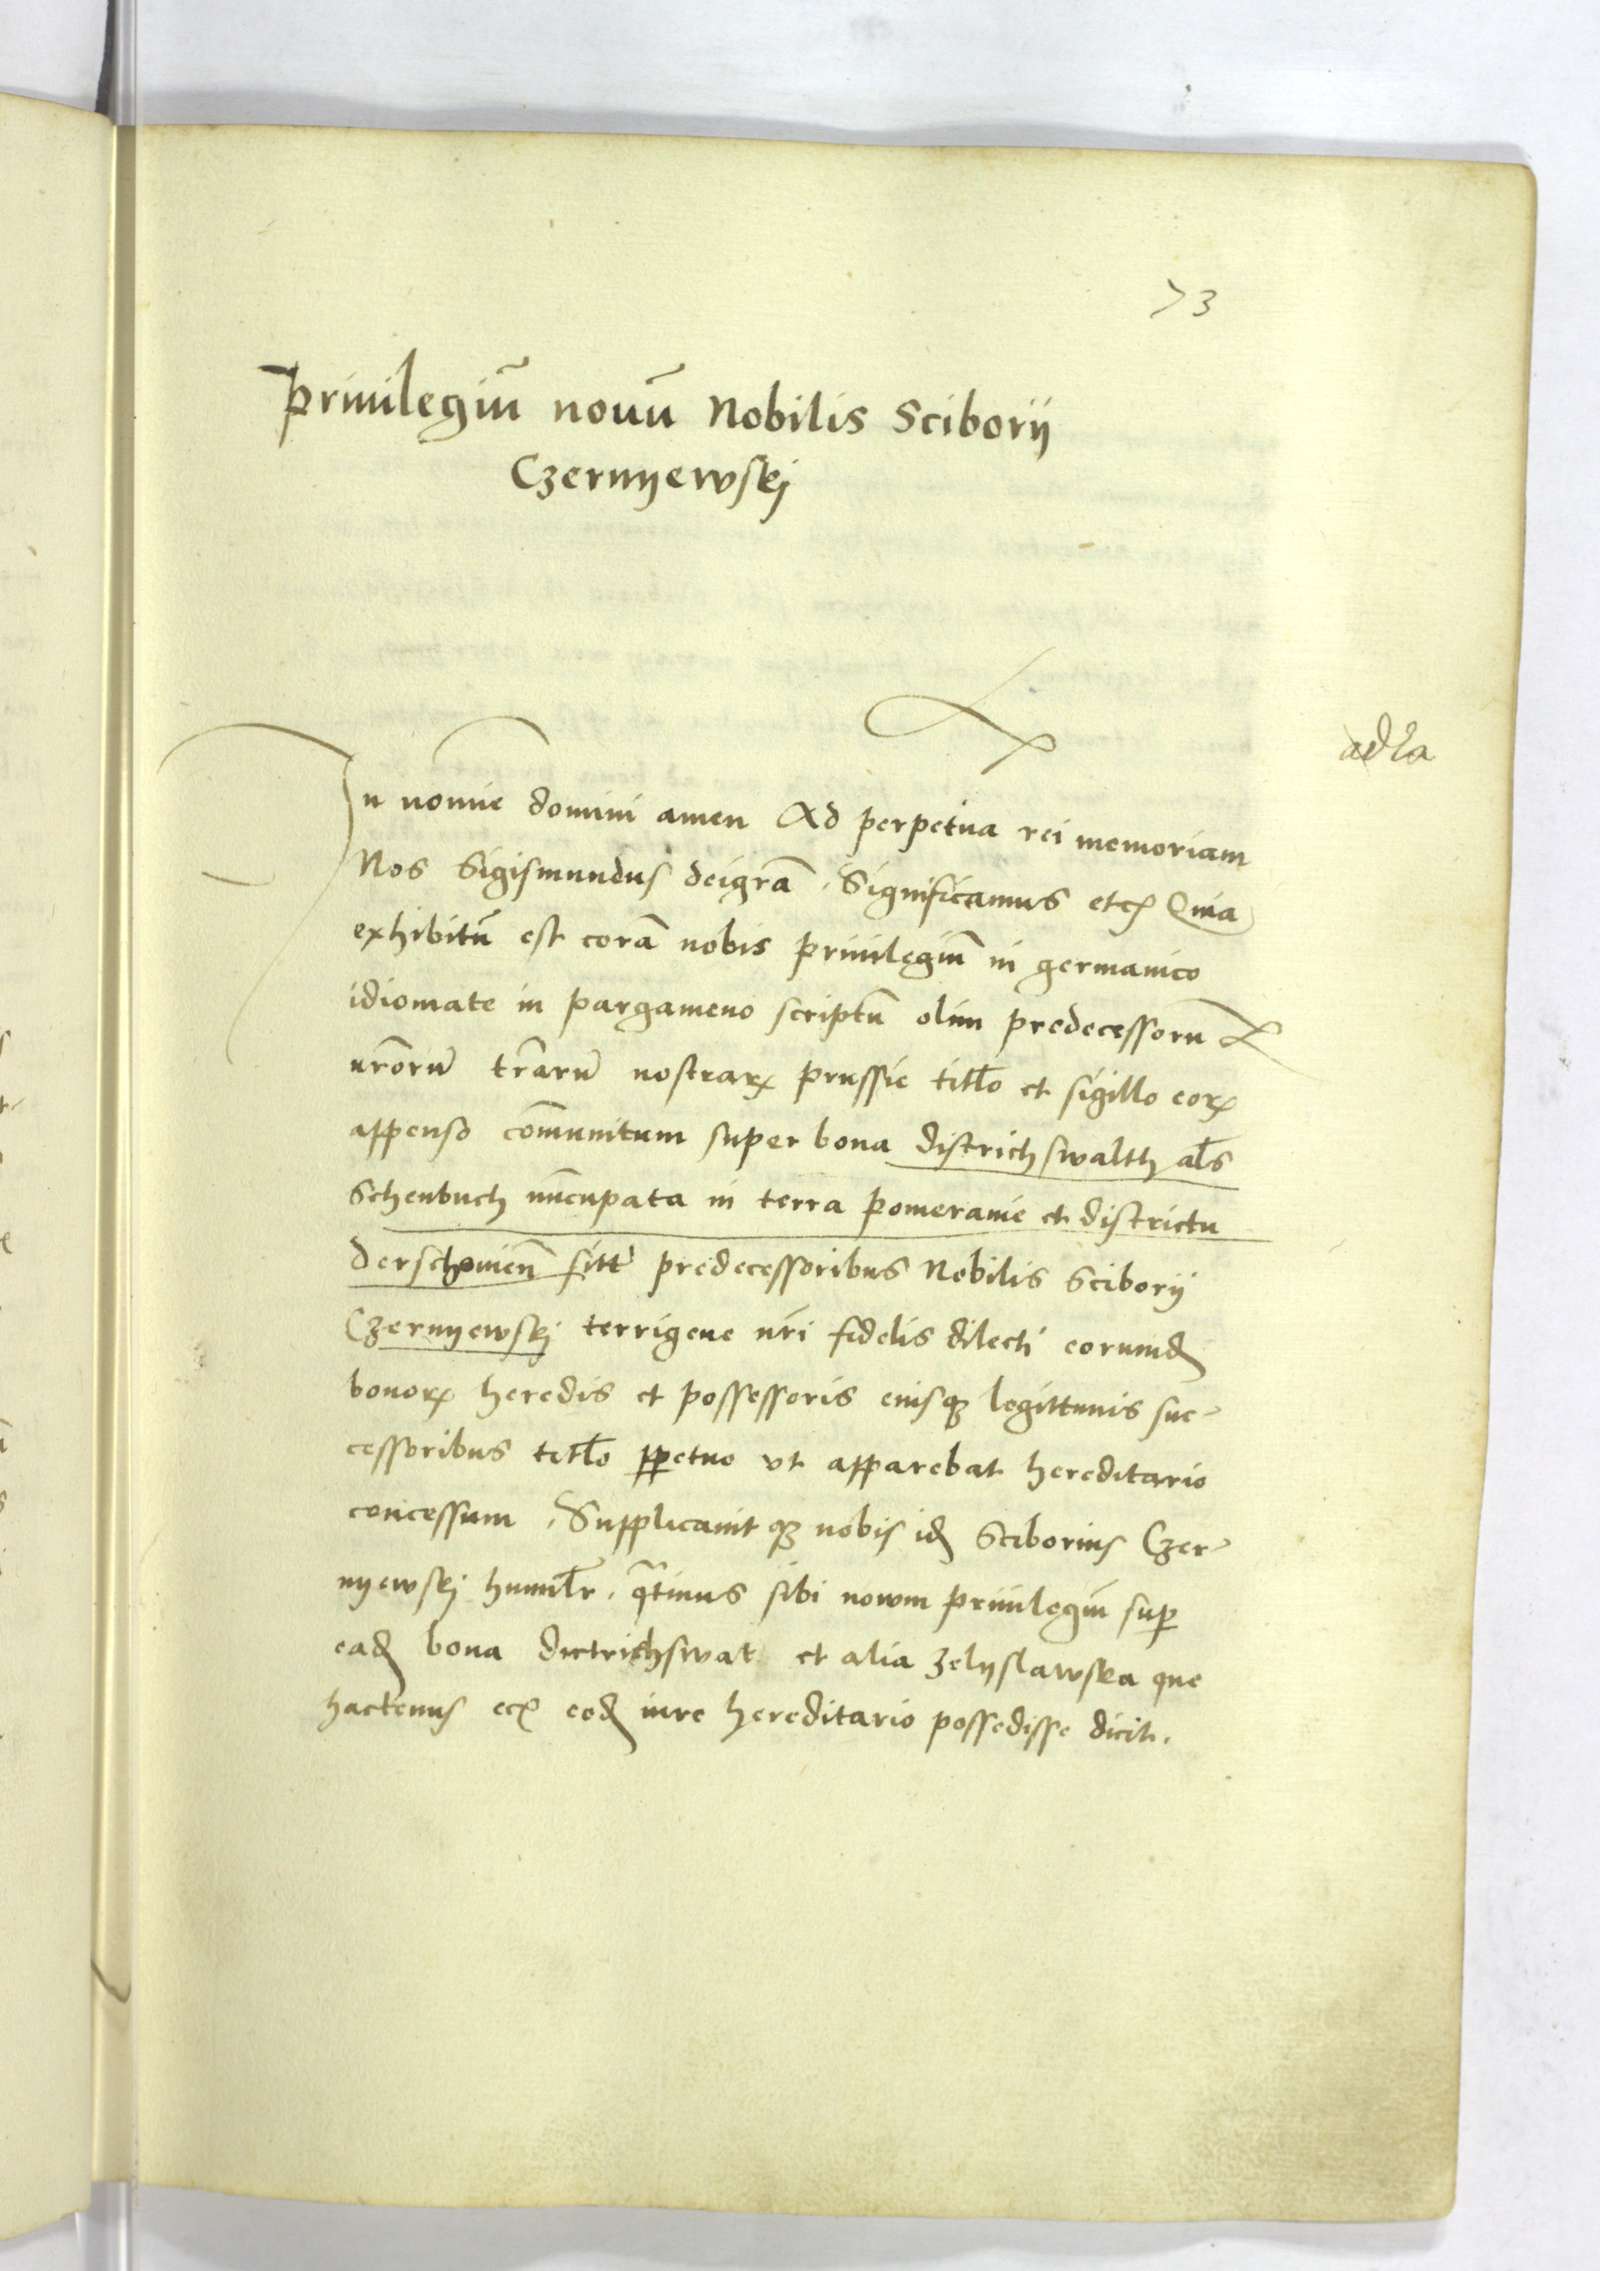 73
Priuilegiũ nouũ Nobilis Sciborij
Czernyewskj
In nomie domini amen Ad perpetua rei memoriam
Nos Sigismundus deigrã. Significamus etc Quia
exhibitũ est corã nobis priuilegiũ in germanico
idiomate in pargameno scriptũ olim predecessorũ
nrorũ trarũ nostrarꝝ prussie titl̃o et sigillo eorꝝ
appenso com̃unitum super bona districhswalth al̃s
Schenbuch nũcupata in terra pomeranie et districtu
derschouien̄ sitt̃ predecessoribus Nobilis Sciborij
Czernyewskj terrigene nr̃i fidelis dilecti eorumd
bonorꝝ heredis et possessoris eiusqꝫ legittimis suc-
cessoribus titl̃o ꝑpetuo vt apparebat hereditario
concessum. Supplicauit qꝫ nobis id Sciborius Czer-
nyewskj humil̃r. q̃tinus sibi nowm priuilegiũ suꝑ
ead bona dictrichswat et alia Zelyslawska que
hactenus ecꝫ eod iure hereditario possedisse dicit.